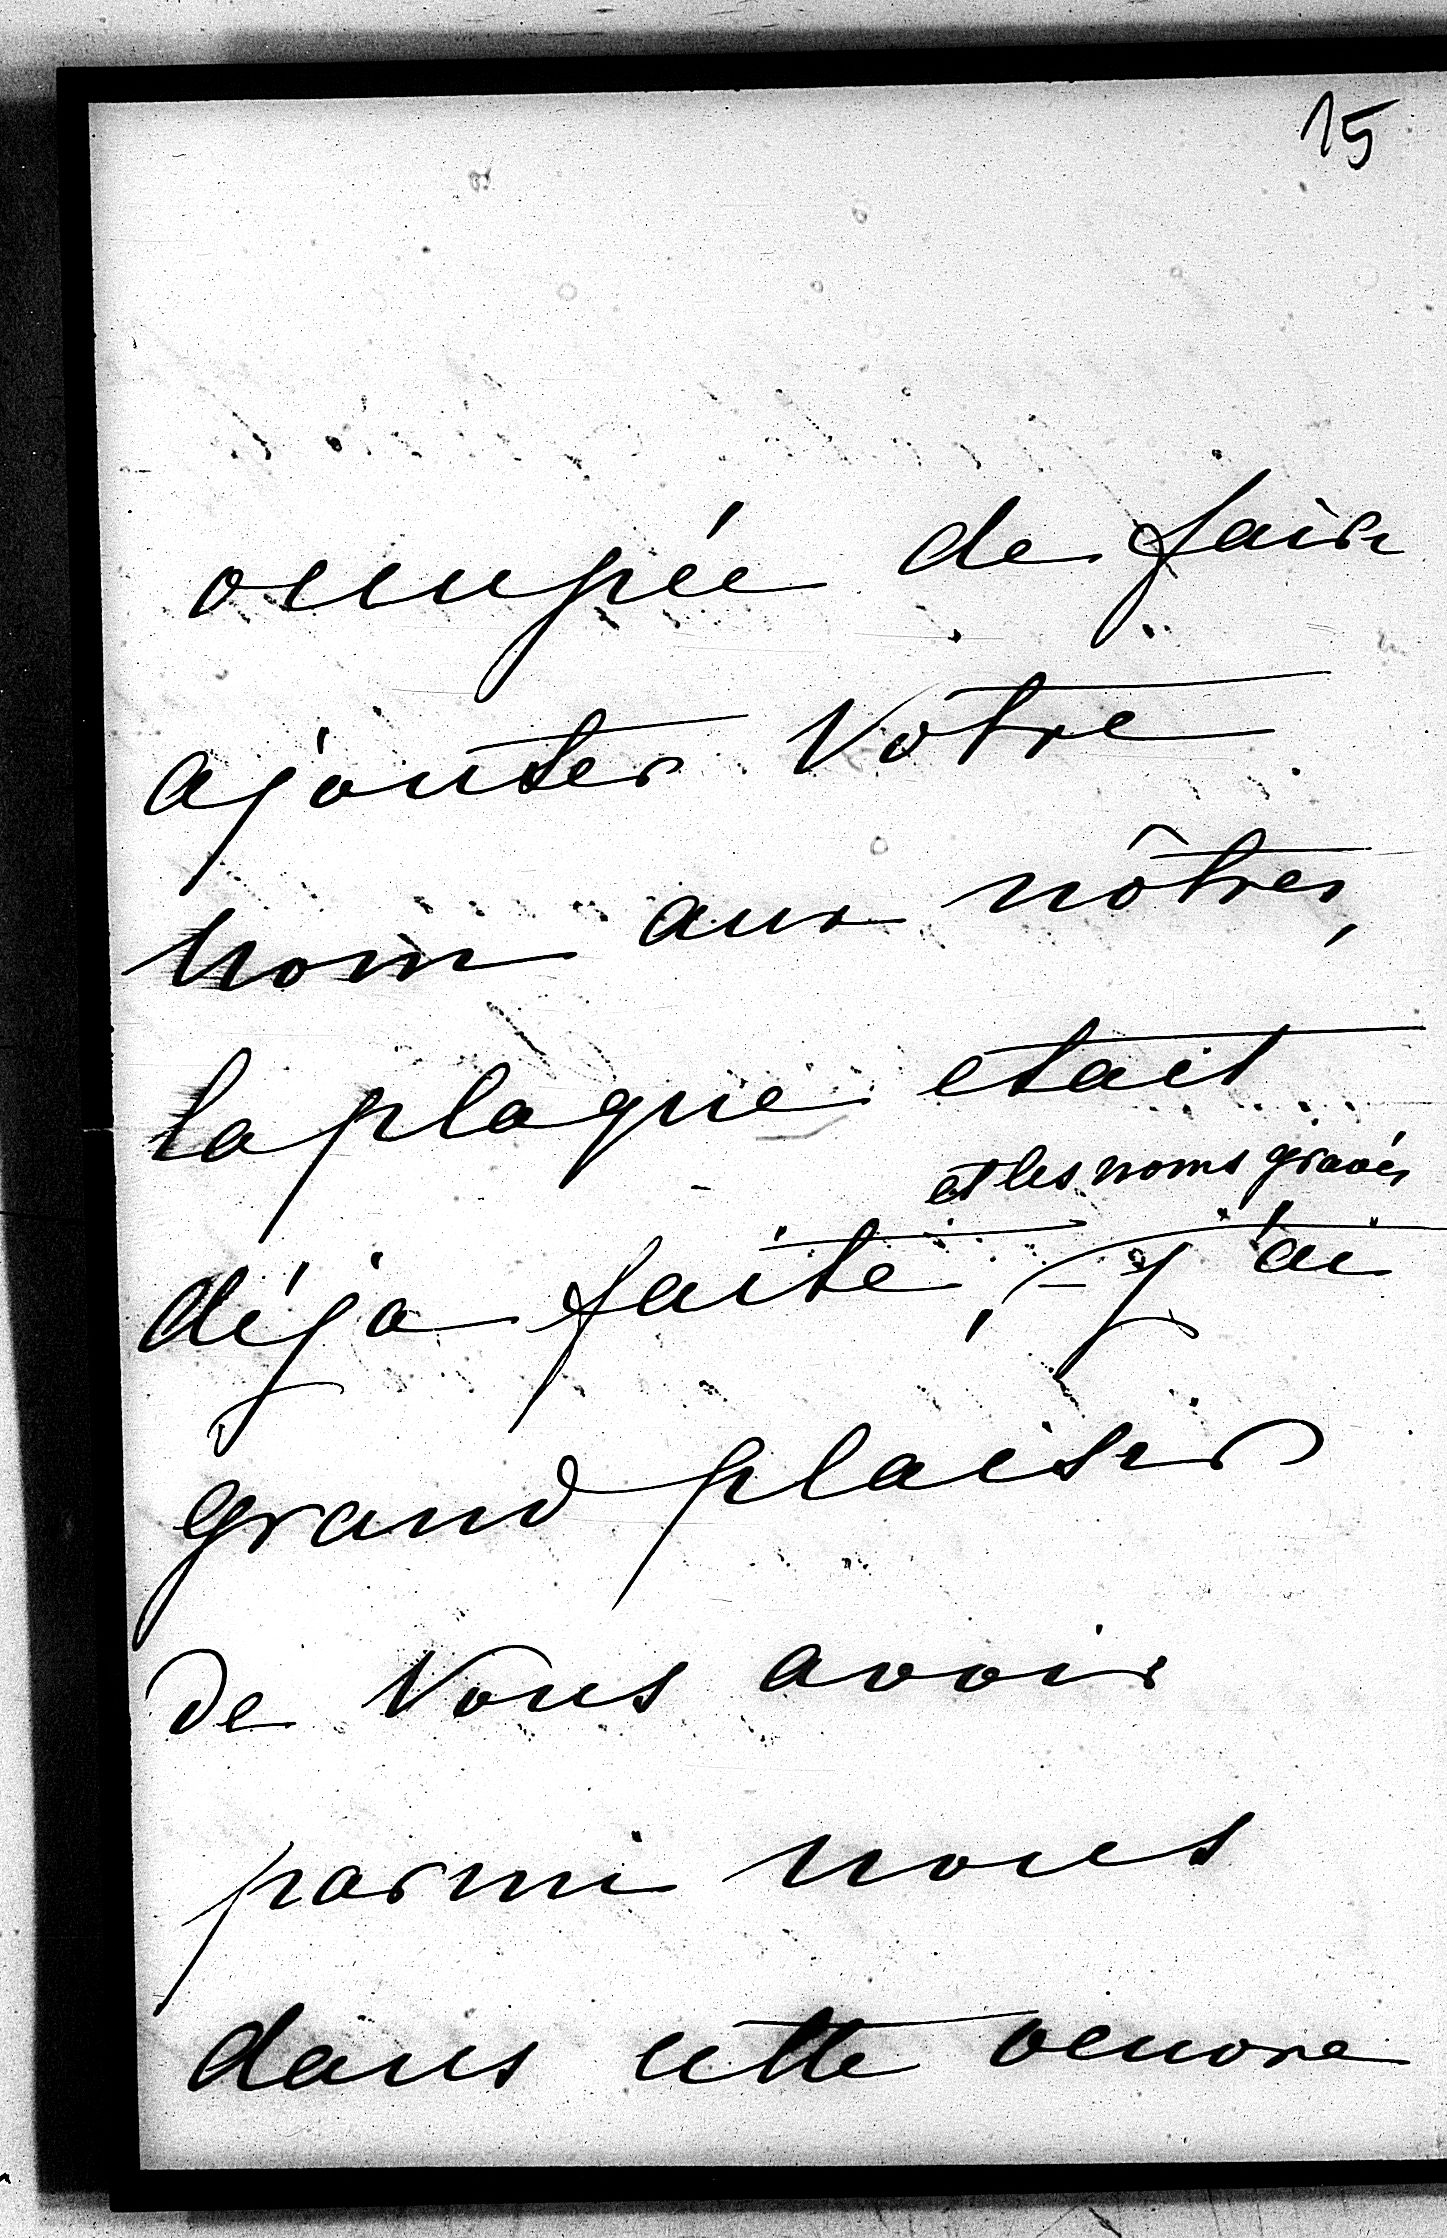 15
occupée de faire
ajouter Votre
nom aux nôtres,
la plaque etait
et les noms gravés
déja faite, – j'ai
grand plaisir
de Vous avoir
parmi nous
dans cette oeuvre